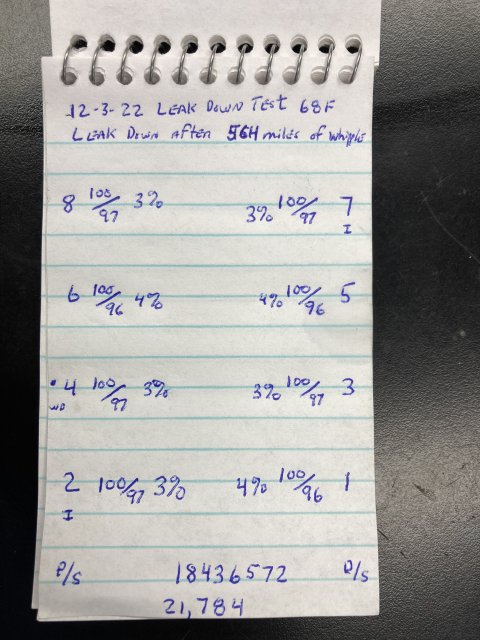 12-3-22 LEAK DOWN TEST 68F
LEAK DOWN AFTER 564 miles of whipple
8 100/97 3% 3% 100/97 7
I
6 100/96 4% 4% 100/96 5
4 100/97 3% 3% 100/97 3
WD
2 100/97 3% 4% 100/96 1
I
P/S 18436572 D/S
21,784